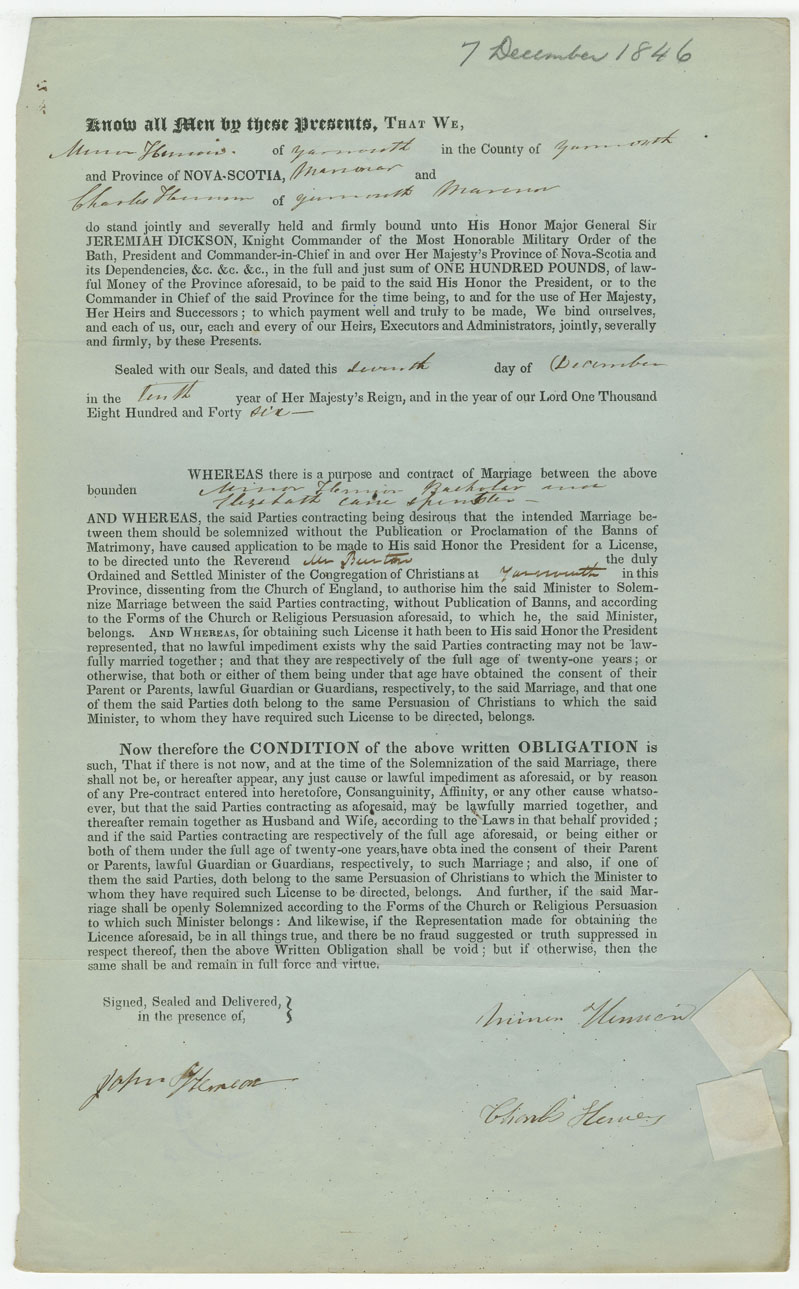 7 December 1846
Know all Men by these Presents, THAT WE,
of Yarmouth in the County of Yarmouth
and Province of NOVA-SCOTIA, Marinor and
Charles of Yarmouth Marinor
do stand jointly and severally held and firmly bound unto His Honor Major General Sir
JEREMIAH DICKSON, Knight Commander of the Most Honorable Military Order of the
Bath, President and Commander-in-Chief in and over Her Majesty's Province of Nova-Scotia and
its Dependencies, &c. &c. &c., in the full and just sum of ONE HUNDRED POUNDS, of law-
ful Money of the Province aforesaid, to be paid to the said His Honor the President, or to the
Commander in Chief of the said Province for the time being, to and for the use of Her Majesty,
Her Heirs and Successors ; to which payment well and truly to be made, We bind ourselves,
and each of us, our, each and every of our Heirs, Executors and Administrators, jointly, severally
and firmly, by these Presents.
Sealed with our Seals, and dated this seventh day of December
in the Tenth year of Her Majesty's Reign, and in the year of our Lord One Thousand
Eight Hundred and Forty six —
WHEREAS there is a purpose and contract of Marriage between the above
bounden Minor Bachelor and
Elizabeth Cann Spinster —
AND WHEREAS, the said Parties contracting being desirous that the intended Marriage be-
tween them should be solemnized without the Publication or Proclamation of the Banns of
Matrimony, have caused application to be made to His said Honor the President for a License,
to be directed unto the Reverend Mr Burton the duly
Ordained and Settled Minister of the Congregation of Christians at Yarmouth in this
Province, dissenting from the Church of England, to authorise him the said Minister to Solem-
nize Marriage between the said Parties contracting, without Publication of Banns, and according
to the Forms of the Church or Religious Persuasion aforesaid, to which he, the said Minister,
belongs. AND WHEREAS, for obtaining such License it hath been to His said Honor the President
represented, that no lawful impediment exists why the said Parties contracting may not be law-
fully married together ; and that they are respectively of the full age of twenty-one years ; or
otherwise, that both or either of them being under that age have obtained the consent of their
Parent or Parents, lawful Guardian or Guardians, respectively, to the said Marriage, and that one
of them the said Parties doth belong to the same Persuasion of Christians to which the said
Minister, to whom they have required such License to be directed, belongs.
Now therefore the CONDITION of the above written OBLIGATION is
such, That if there is not now, and at the time of the Solemnization of the said Marriage, there
shall not be, or hereafter appear, any just cause or lawful impediment as aforesaid, or by reason
of any Pre-contract entered into heretofore, Consanguinity, Affinity, or any other cause whatso-
ever, but that the said Parties contracting as aforesaid, may be lawfully married together, and
thereafter remain together as Husband and Wife, according to the Laws in that behalf provided ;
and if the said Parties contracting are respectively of the full age aforesaid, or being either or
both of them under the full age of twenty-one years,have obta ined the consent of their Parent
or Parents, lawful Guardian or Guardians, respectively, to such Marriage ; and also, if one of
them the said Parties, doth belong to the same Persuasion of Christians to which the Minister to
whom they have required such License to be directed, belongs. And further, if the said Mar-
riage shall be openly Solemnized according to the Forms of the Church or Religious Persuasion
to which such Minister belongs : And likewise, if the Representation made for obtaining the
Licence aforesaid, be in all things true, and there be no fraud suggested or truth suppressed in
respect thereof, then the above Written Obligation shall be void ; but if otherwise, then the
same shall be and remain in full force and virtue.
Signed, Sealed and Delivered,
in the presence of,
John
Charls